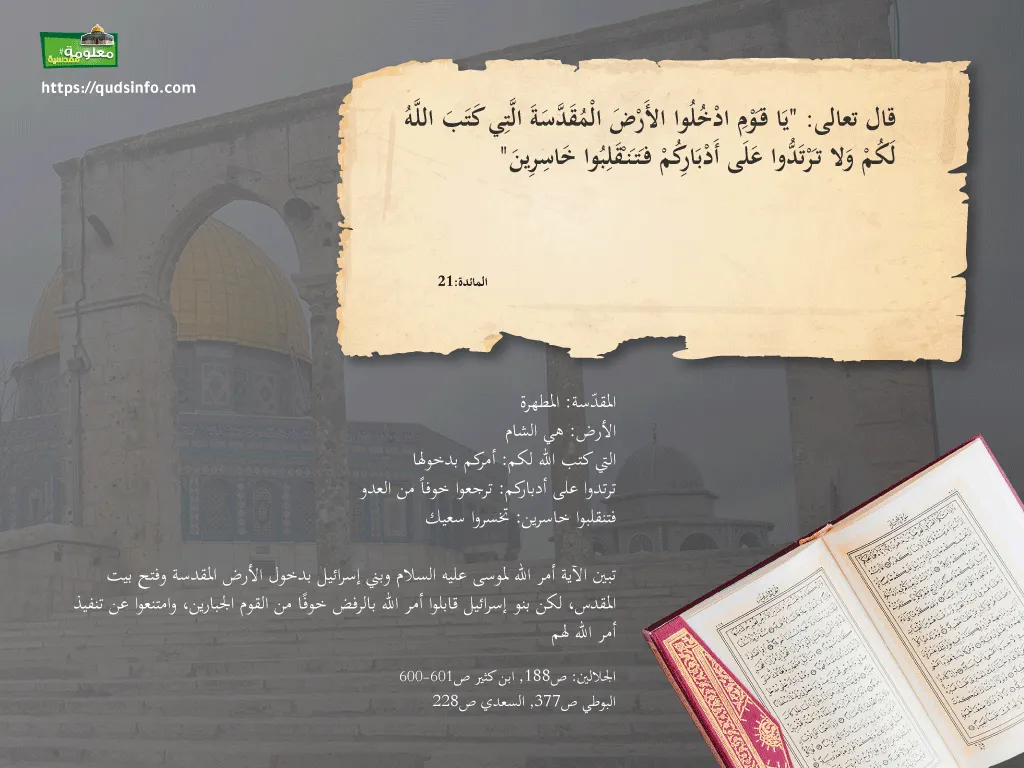 #معلومة
مقدسية
https://qudsinfo.com
قال تعالى: "يَا قَوْمِ ادْخُلُوا الأَرْضَ الْمُقَدَّسَةَ الَّتِي كَتَبَ اللَّهُ
لَكُمْ وَلا تَرْتَدُّوا عَلَى أَدْبَارِكُمْ فَتَنْقَلِبُوا خَاسِرِينَ"
المائدة:21
المقدّسة: المطهرة
الأرض: هي الشام
التي كتب الله لكم: أمركم بدخولها
ترتدوا على أدباركم: ترجعوا خوفاً من العدو
فتنقلبوا خاسرين: تخسروا سعيك
تبين الآية أمر الله لموسى عليه السلام وبني إسرائيل بدخول الأرض المقدسة وفتح بيت
المقدس، لكن بنو إسرائيل قابلوا أمر الله بالرفض خوفًا من القوم الجبارين، وامتنعوا عن تنفيذ
أمر الله لهم
الجلالين: ص188, ابن كثير ص601-600
البوطي ص377, السعدي ص228